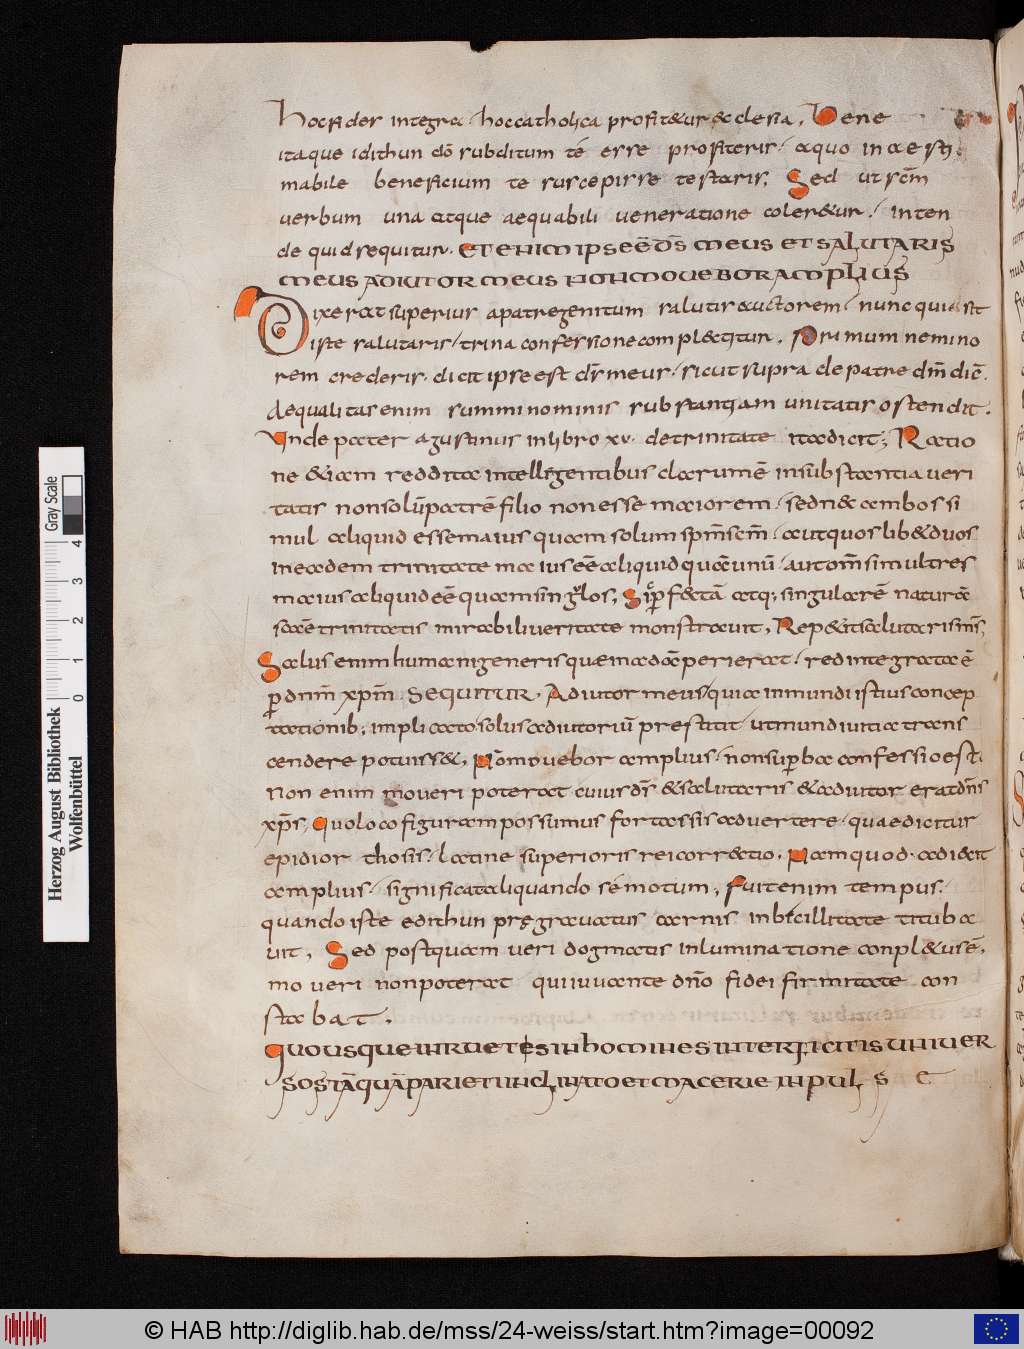 hoc fides integra hoc catholica profit&ur &cclesia, Bene
itaque idithun dō subditum té esse profiteris, aquo in aesti
mabile beneficium te suscepisse testaris, Sed ut scm̄
uerbum una atque aequabili ueneratione coler&ur, inten
de quid sequitur. ET ENIM IPSE Ē DS̄ MEUS ET SALUTARIS
MEUS ADIUTOR MEUS NON MOUEBOR AMPLIUS
Dixerat superius apatregenitum salutis auctorem, nunc qui sit
iste salutaris, trina confessione compl&titur, Primum nemino
rem crederis, dicit ipse est ds̄ meus, sicut supra de patre dm̄ dic̄.
Aequalitas enim summi nominis substantiam unitatis ostendit.
Unde pater agustinus in libro xv. de trinitate ita dicit; Ratio
ne &iam reddita intellegentibus clarum ē insubstantia ueri
tatis non solū patrē filio non esse maiorem, sed n& ambos si
mul aliquid esse maius quam solum spm̄ scm̄, aut quoslib& duos
in eadem trinitate maius eē aliquid quā unū, aut om̄s simul tres
maius aliquid eē quam singulos, Sip̱ f&tā atq; singularē naturā
saē trinitatis mirabili ueritate monstrauit, Rep&it salutaris ms̄,
Salus enim humani generis quae inadā perierat, redintegrata ē
p̱ dnm̄ xpm̄. SEQUITUR. Adiutor meus, quia inmundi istius concep
tationib; implicato solus adiutoriū prestitit, ut mundi uitia trans
cendere potuiss&, Nō mouebor amplius, non sup̱ba confessio est.
Non enim moueri poterat cuius ds̄ &salutaris &adiutor erat dn̄s
xps̄, Quo loco figuram possumus fortassis aduertere, quae dicitur
epidior thosis, latine superioris rei corr&tio, Nam quod. adi&it
amplius, significat aliquando sémotum, fuit enim tempus,
quando iste edithun pręgrauatus carnis inbicillitate tituba
uit, Sed postquam ueri dogmatis inluminatione conpl&us ē,
mo ueri non poterat qui iuuante dnō fidei firmitate con
stabat,
QUOUSQUE INRUETES IN HOMINES INTERFICITIS UNIUER
SOS TĀQUĀ PARIETI INCLINATO ET MACERIE INPULS
Gray Scale
0 1 2 3 4
Herzog August Bibliothek
Wolfenbüttel
© HAB http://diglib.hab.de/mss/24-weiss/start.htm?image=00092